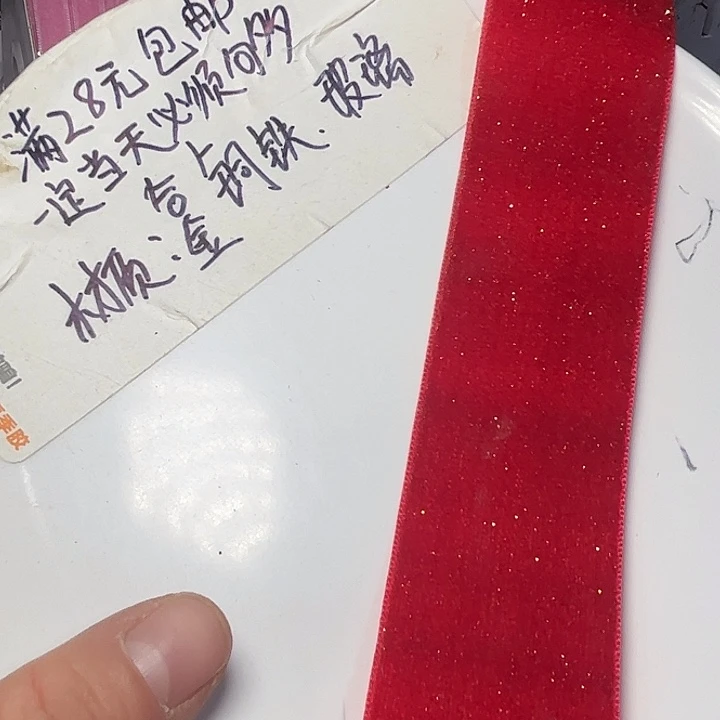 满28元包邮
一定当天必须问
材质：合金 铜 铁. 玻璃